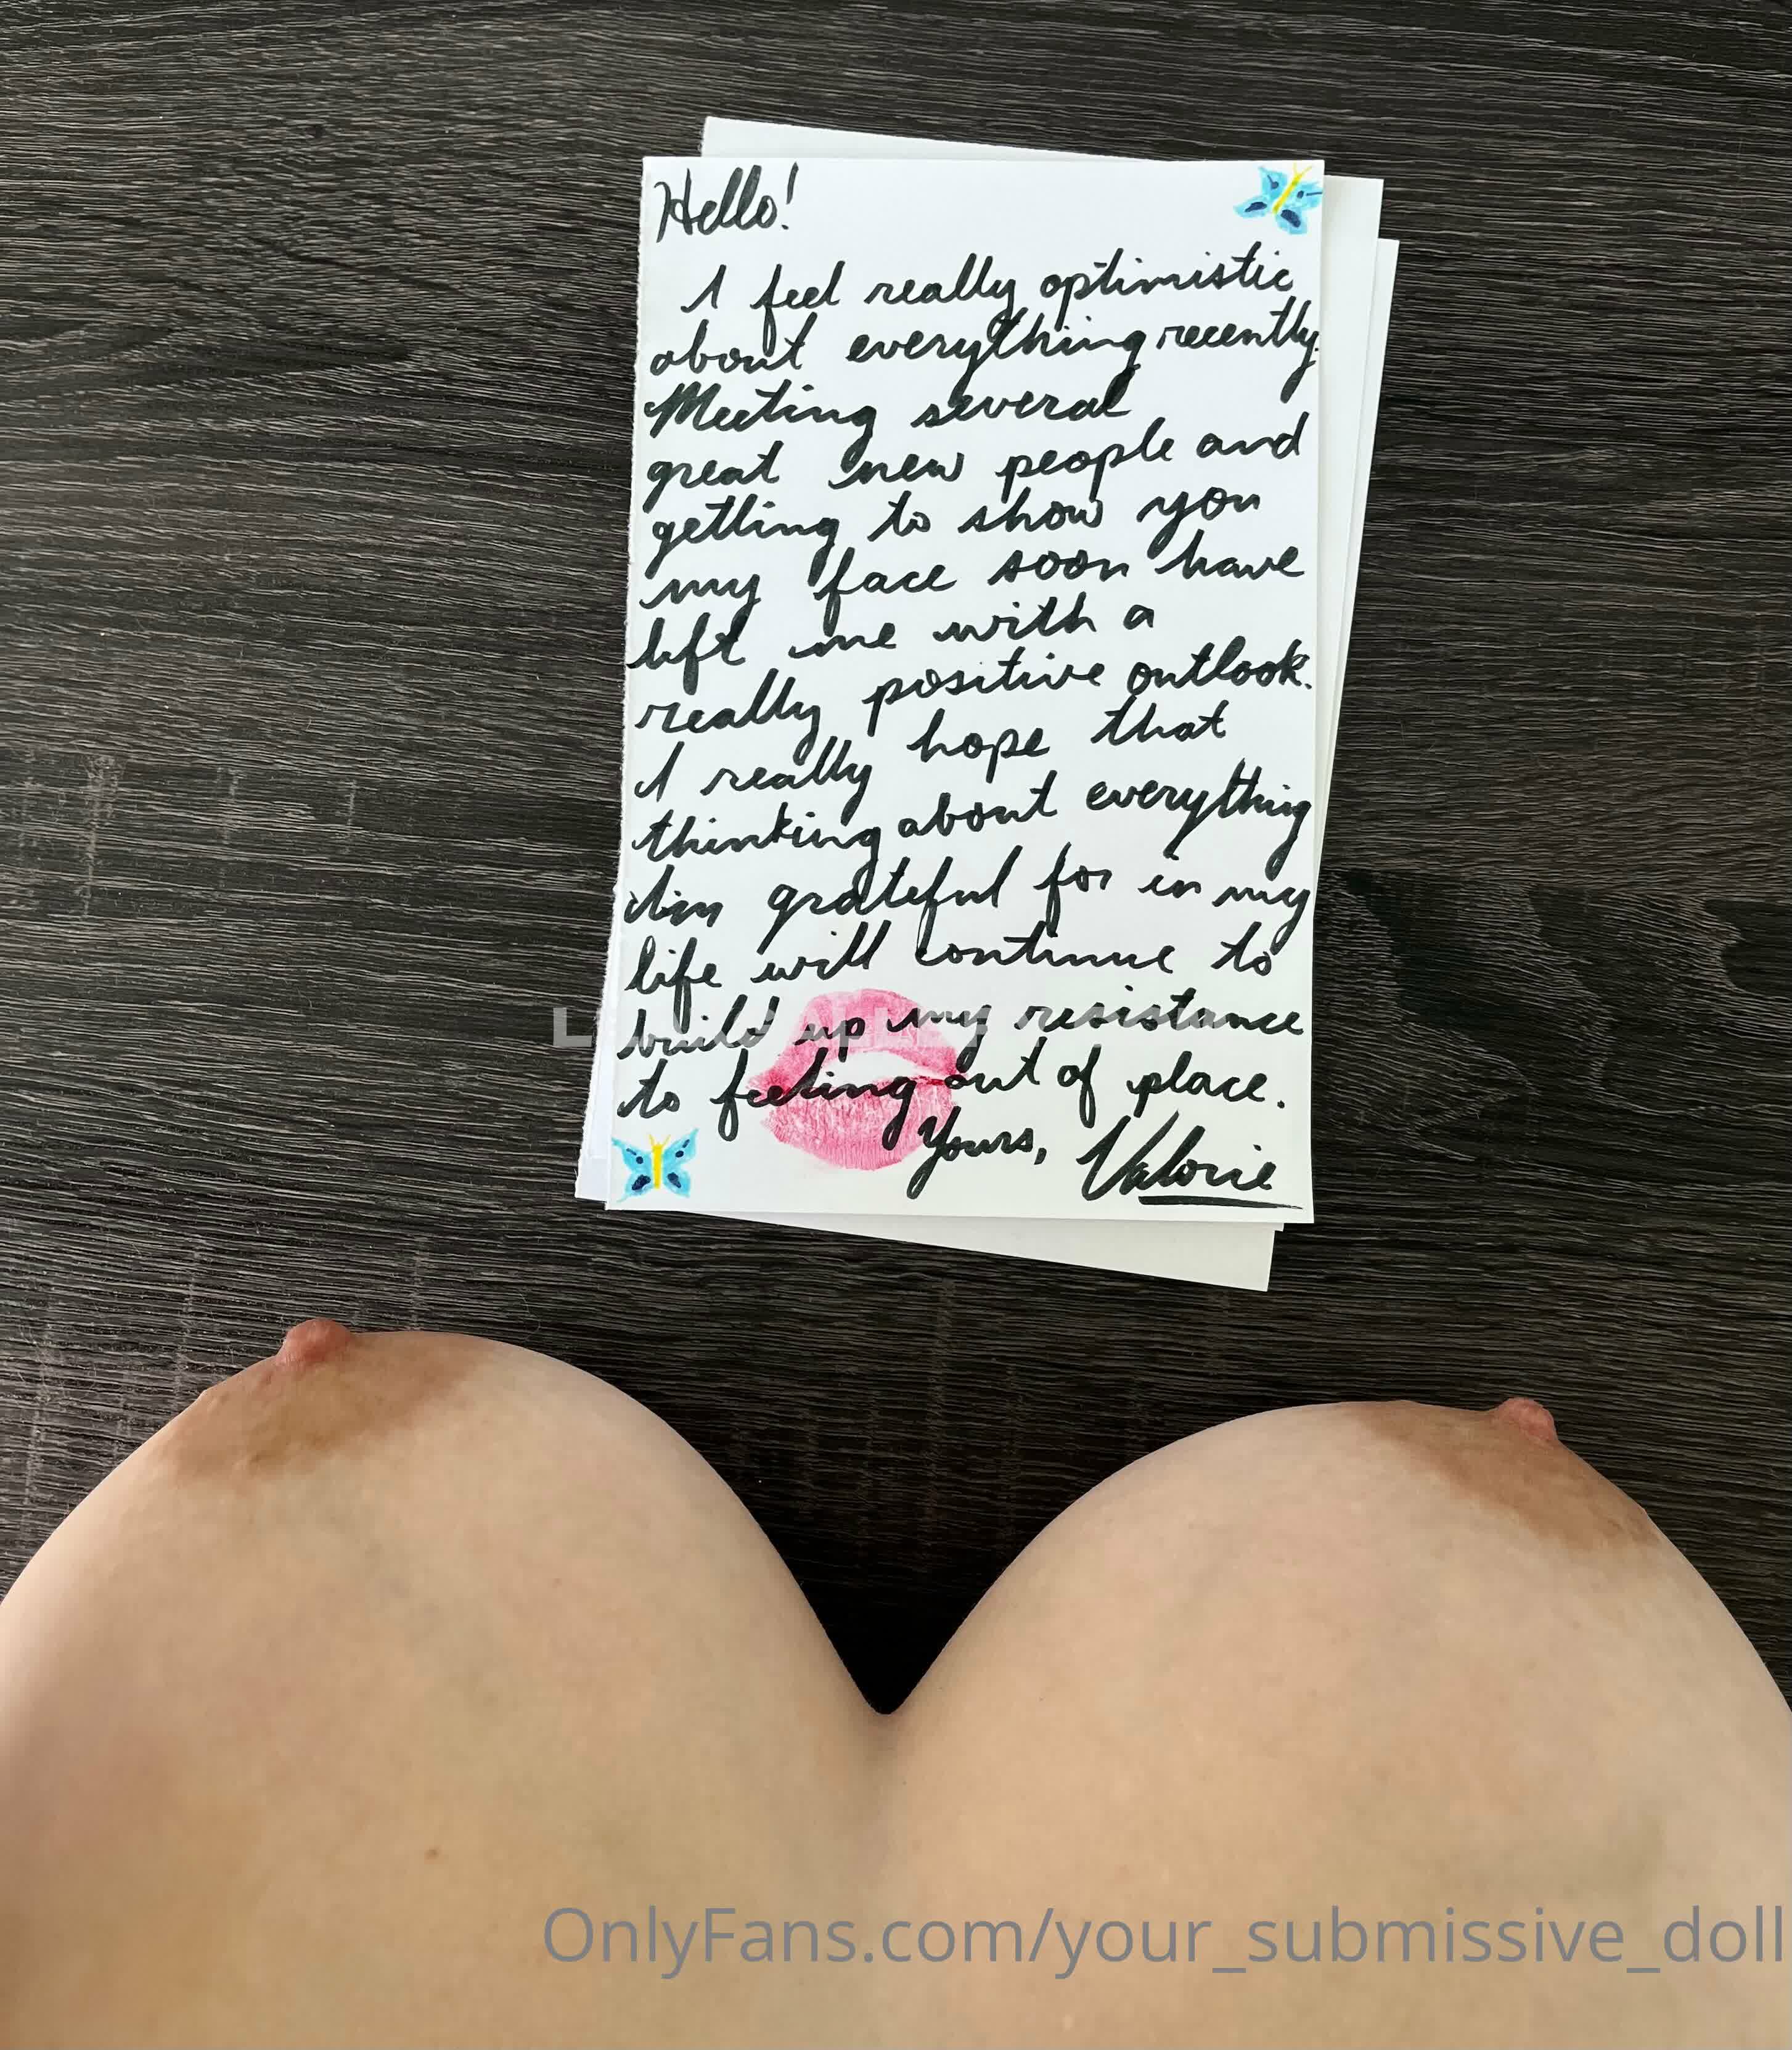 Hello!
I feel really optimistic
about everything recently.
Meeting several
great new people and
getting to show you
my face soon have
left me with a
really positive outlook.
I really hope that
thinking about everything
I'm grateful for in my
life will continue to
build up my resistance
to feeling out of place.
Yours, Valorie
OnlyFans.com/your_submissive_doll